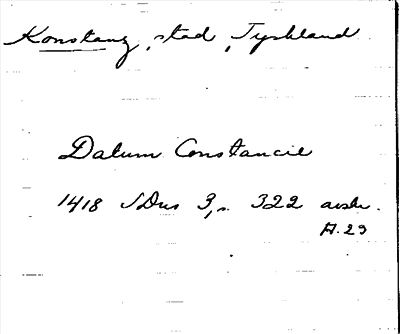 Konstanz, stad, Tyskland.
Datum Constancie
1418 SDns 3, s. 322 avskr.
A. 23